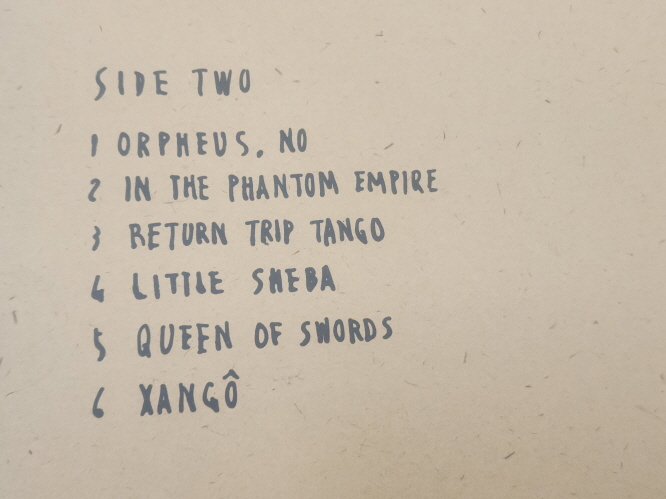 SIDE TWO
1 ORPHEUS, NO
2 IN THE PHANTOM EMPIRE
3 RETURN TRIP TANGO
4 LITTLE SHEBA
5 QUEEN OF SWORDS
6 XANGÔ